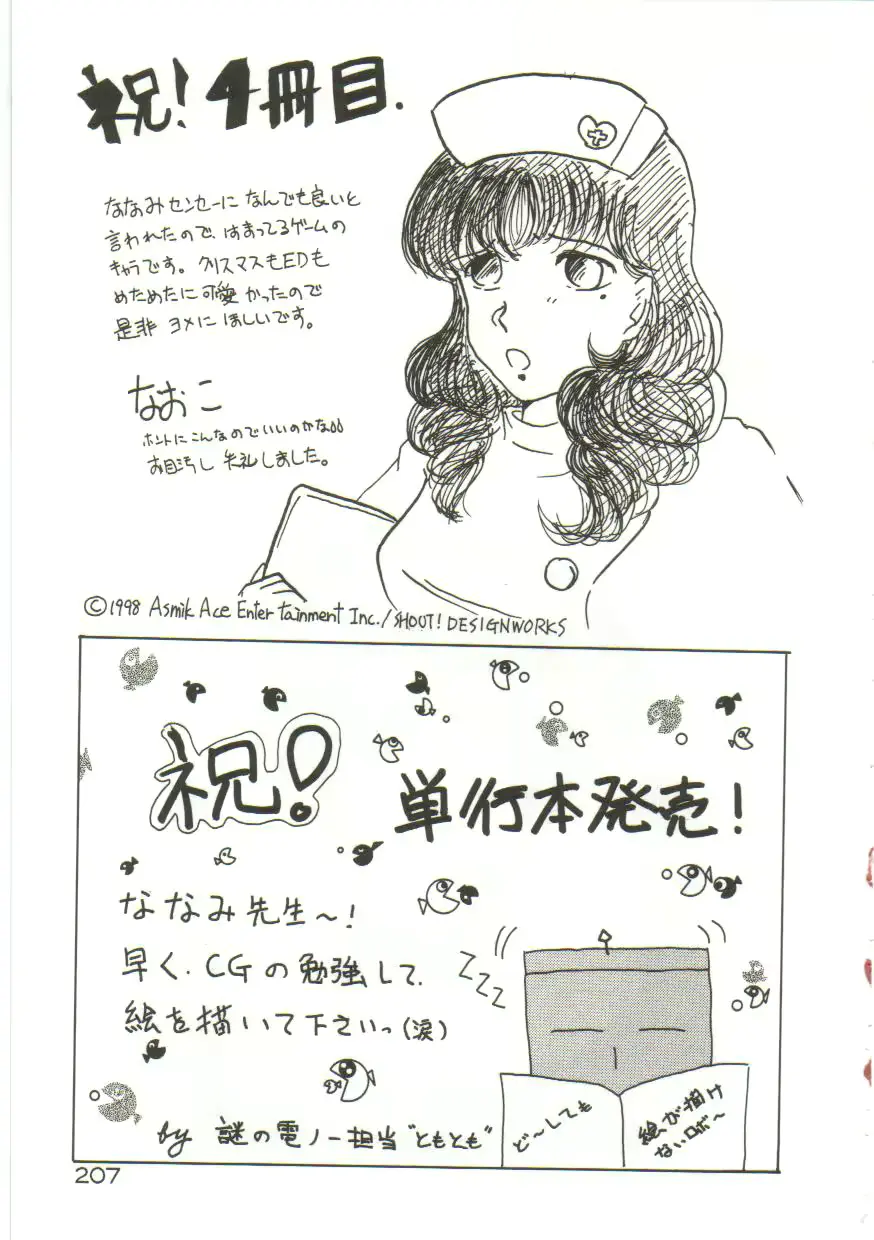 祝!4冊目.
ななみセンセーに なんでも良いと
言われたので、はまってるゲームの
キャラです。クリスマスもEDも
めためたに可愛かったので
是非 ヨメにほしいです。
なおこ
ホントにこんなのでいいのかな
お目汚し 失礼しました。
©1998 Asmik Ace Entertainment Inc./SHOUT! DESIGNWORKS
祝!
単行本発売!
ななみ先生〜!
早く、CGの勉強して、
絵を描いて下さいっ(涙)
ZZZ
ど〜しても
絵が描け
ないロボ〜
by 謎の電ノー担当“ともとも”
207